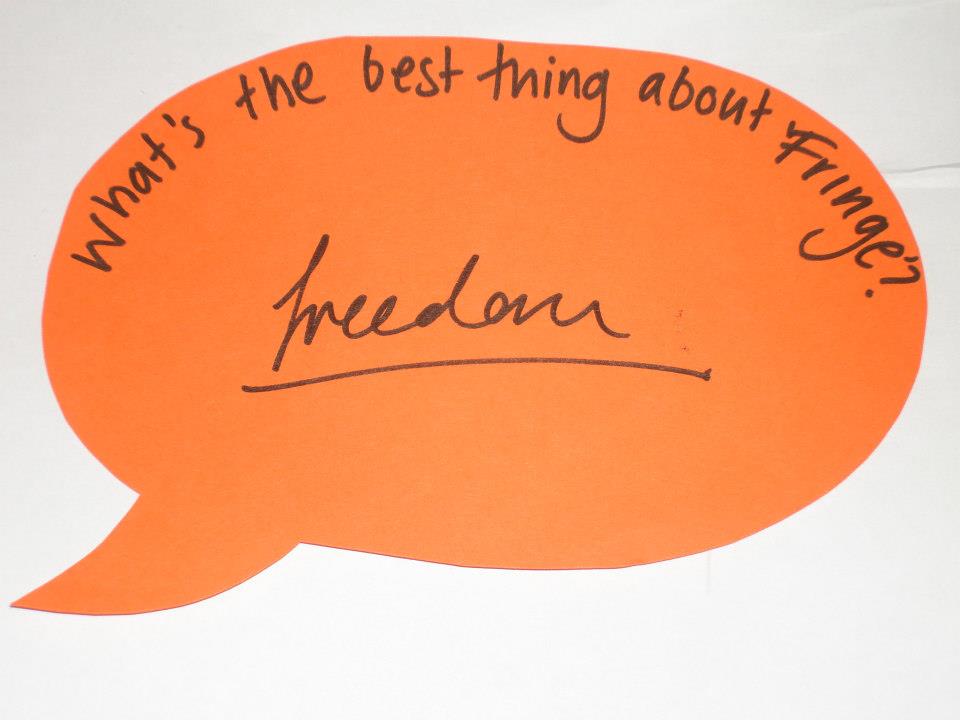 What's the best thing about Fringe?
freedom